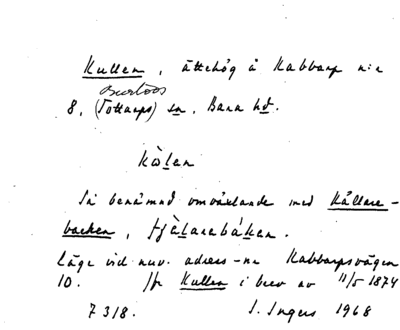 Kullen, ättehög å Kabbarp n:r
Burlövs
8, (Tottarps) sn, Bara hd.
kòlen
Så benämnd omväxlande med Källare-
backen, tjèlarebáken.
Läge vid nuv. adress-nr Kabbarpsvägen
10. Jfr Kullen i brev av 11/5 1874
7318. I. Ingers 1968